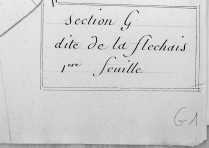 section G
dite de la flechais
1ere feuille
G1